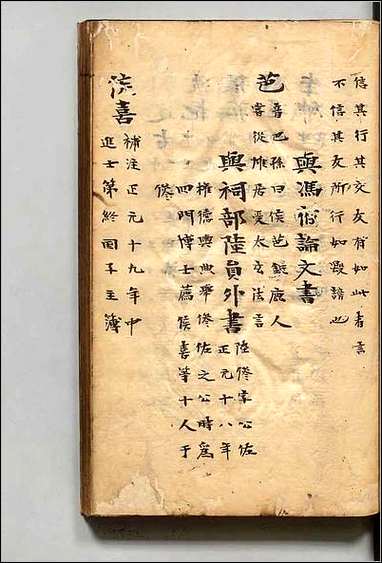 信其行其交友有如此者言
不信其友所行如毀謗也
與馮宿論文書
芭
音巴孫曰侯芭鉅鹿人
常從雄居受太玄法言
與祠部陸員外書
陸傪字公佐
正元十八年
權德輿典舉傪佐之公時為
四門博士薦侯喜等十人于
傪
侯喜
補注正元十九年中
進士第終國子主簿